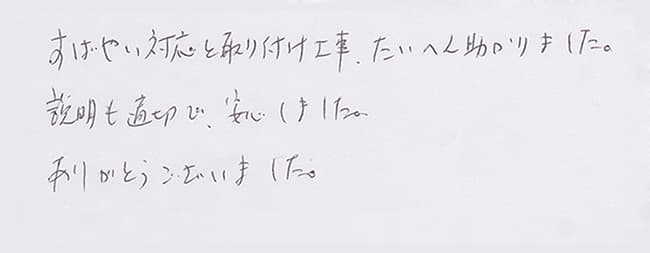 すばやい対応と取り付け工事、たいへん助かりました。
説明も適切で、安心しました。
ありがとうございました。